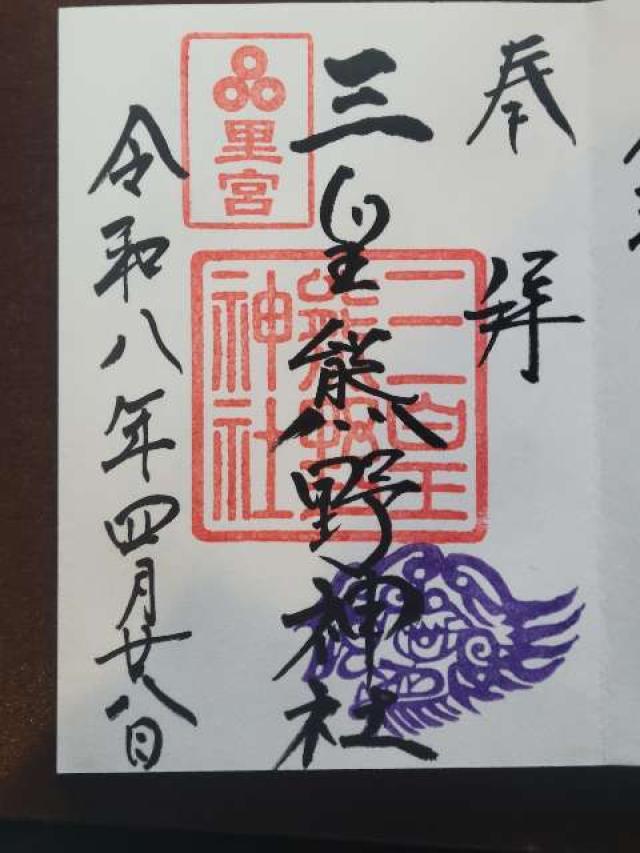 奉拝
三皇熊野神社
三皇熊野神社
里宮
令和八年四月廿八日